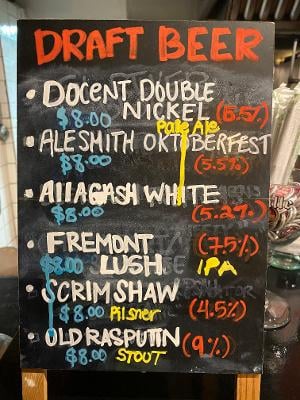 DRAFT BEER
• DOCENT DOUBLE
NICKEL (5.5%)
$8.00 Pale Ale
• ALESMITH OKTOBERFEST
$8.00 (5.5%)
• AllAGASH WHITE
$8.00 (5.2%)
• FREMONT (7.5%)
$8.00 LUSH IPA
• SCRIMSHAW
$8.00 Pilsner (4.5%)
• OLD RASPUTIN (9%)
$8.00 STOUT